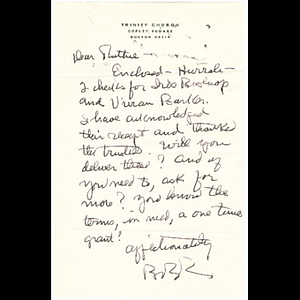 TRINITY CHURCH
COPLEY SQUARE
BOSTON 02116
Dear Ruthie —
Enclosed — Hurrah —
2 checks for Iris Bishop
and Vivian Barker.
I have acknowledged
their receipt and thanked
the trustees. Will you
deliver these? and if
you need to, ask for
more? you know the
terms, in need, a one time
grant?
affectionately